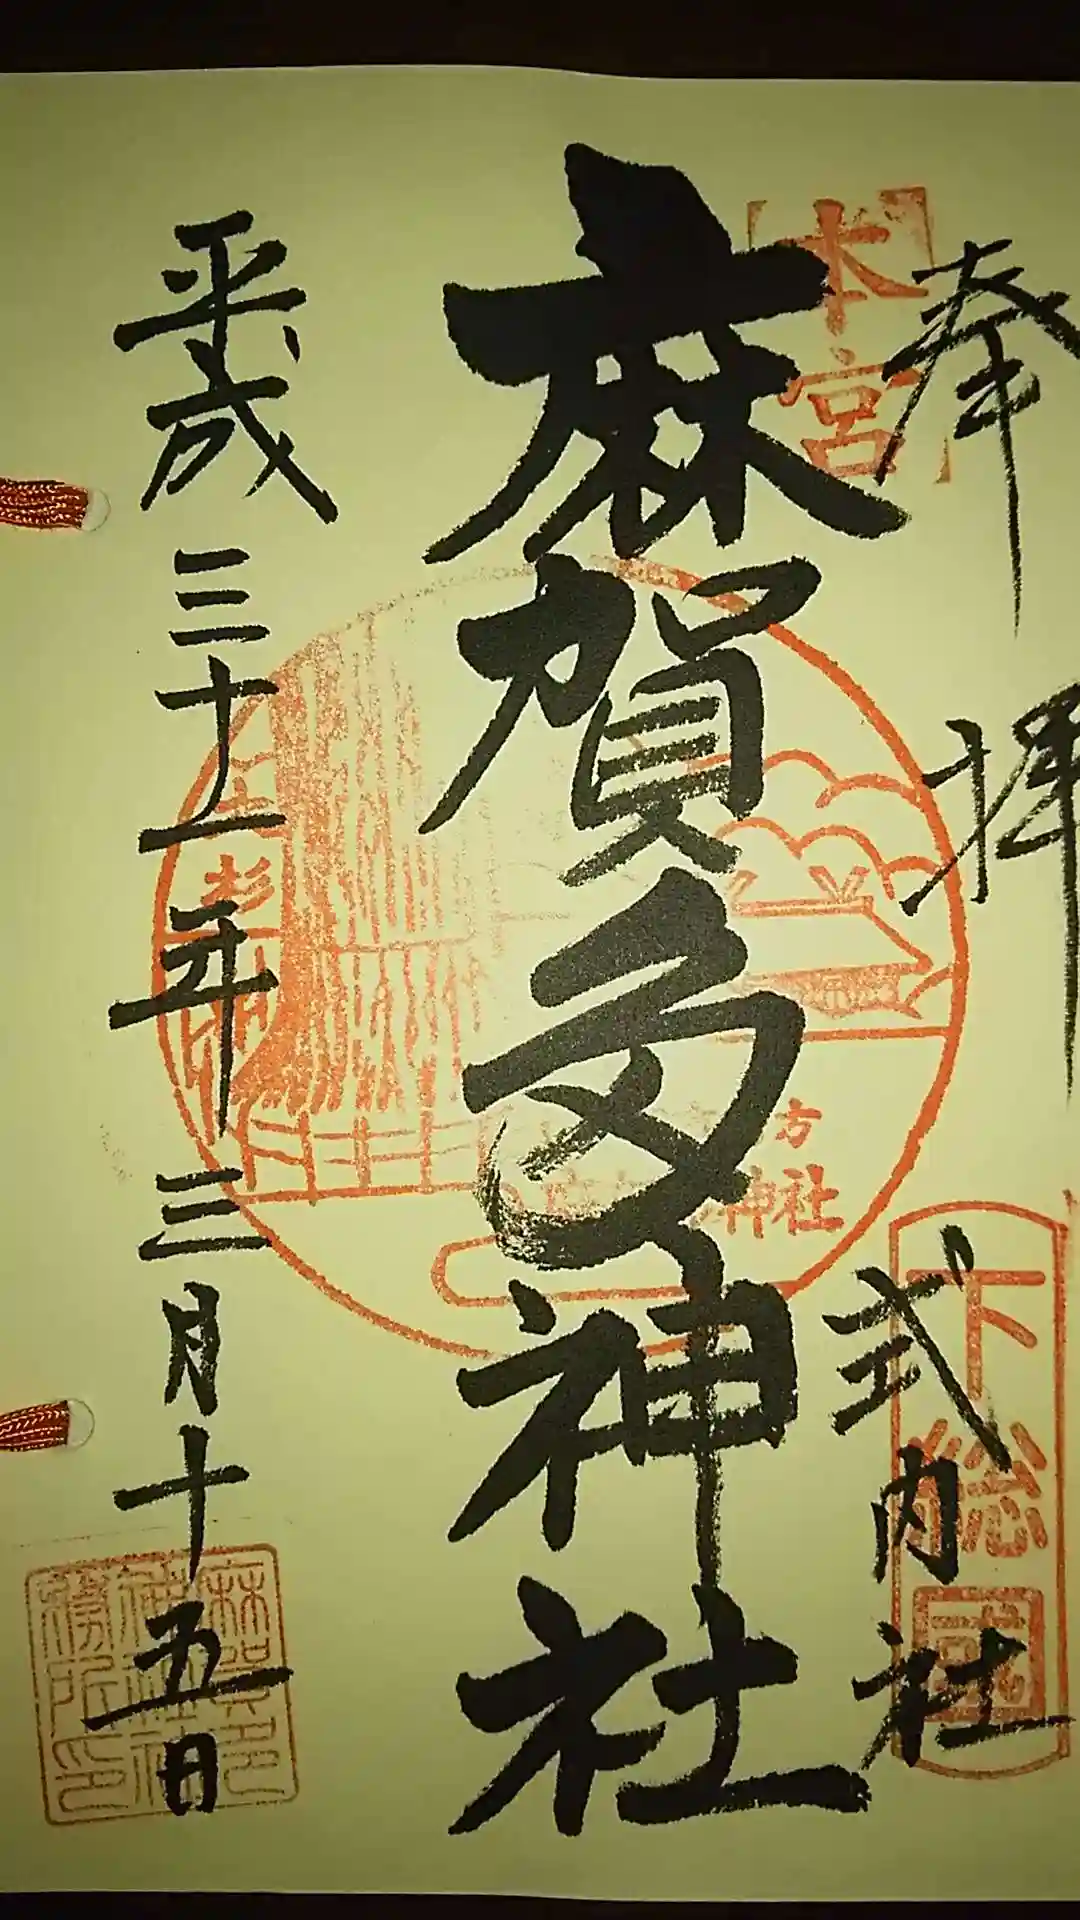 奉拝
本宮
式内社
下総国
麻賀多神社
大杉
方
神社
平成三十一年三月十五日